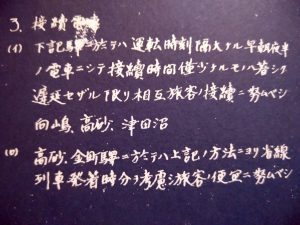 3. 接續
(イ) 下記驛ニ於テハ運転時刻隔大ナル早朝夜半
ノ電車ニシテ接續時間僅少ナルモノハ著シク
遅延セザル限リ相互旅客ノ接續ニ努ムベシ
向島、高砂、津田沼
(ロ) 高砂、金町驛ニ於テハ上記ノ方法ニヨリ省線
列車発着時分ヲ考慮シ旅客ノ便宜ニ努ムベシ